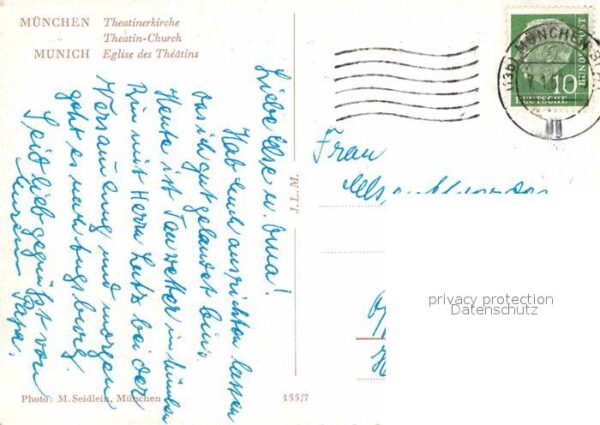 MÜNCHEN Theatinerkirche
Theatin-Church
MUNICH Eglise des Théâtins
(13b) MÜNCHEN
10
DEUTSCHE
BUNDESPOST
Liebe Else u. Oma!
Hab Euch ausrichten lassen
das ich gut gelandet bin.
Heute ist Tauwetter in München
Bin mit Herrn Lutz bei der
Versammlung und morgen
geht es nach Augsburg.
Seid lieb gegrüßt von
Eurem Papa.
Frau
privacy protection
Datenschutz
Photo: M. Seidlein, München
155/7